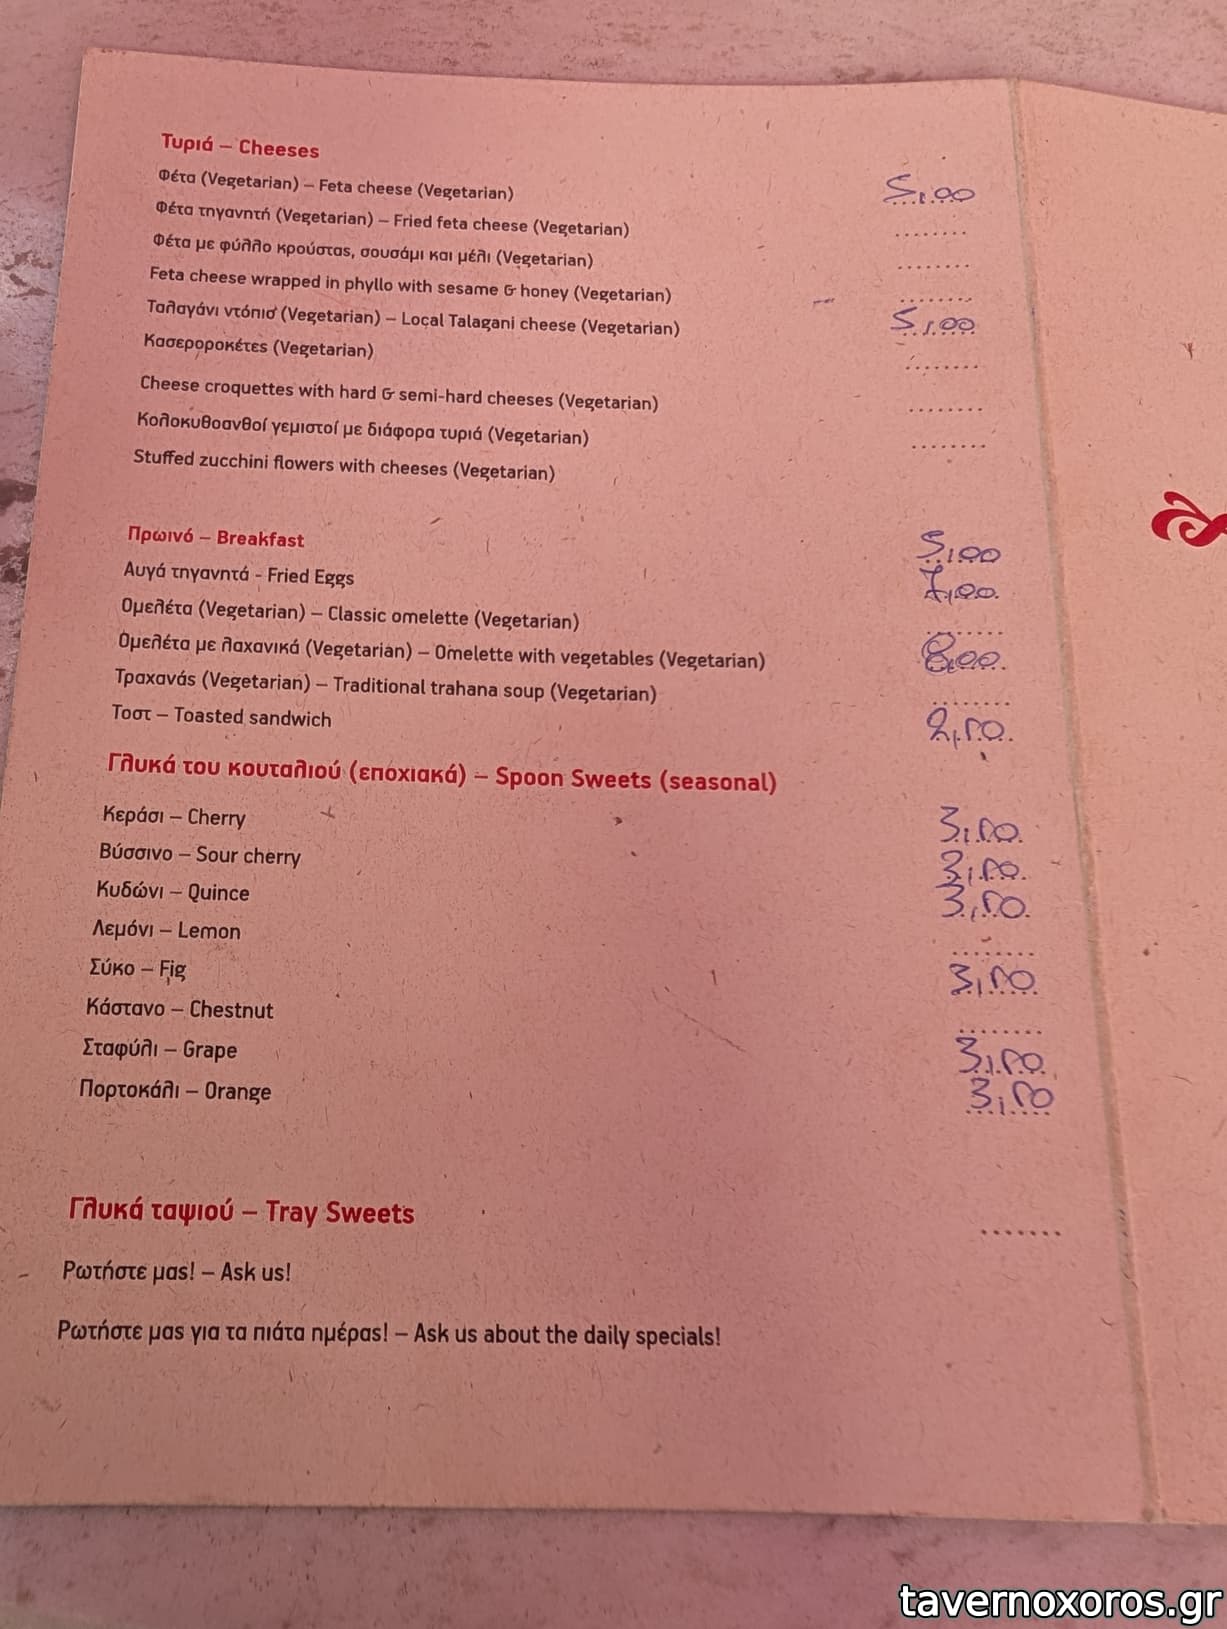 Τυριά – Cheeses
Φέτα (Vegetarian) – Feta cheese (Vegetarian) 5,00
Φέτα τηγανητή (Vegetarian) – Fried feta cheese (Vegetarian) ........
Φέτα με φύλλο κρούστας, σουσάμι και μέλι (Vegetarian) ........
Feta cheese wrapped in phyllo with sesame & honey (Vegetarian) ........
Ταλαγάνι ντόπιο (Vegetarian) – Local Talagani cheese (Vegetarian) 5,00
Κασεροροκέτες (Vegetarian) ........
Cheese croquettes with hard & semi-hard cheeses (Vegetarian) ........
Κολοκυθοανθοί γεμιστοί με διάφορα τυριά (Vegetarian) ........
Stuffed zucchini flowers with cheeses (Vegetarian)
Πρωινό – Breakfast
Αυγά τηγανητά - Fried Eggs 5,00
Ομελέτα (Vegetarian) – Classic omelette (Vegetarian) 7,00
Ομελέτα με λαχανικά (Vegetarian) – Omelette with vegetables (Vegetarian) 8,00
Τραχανάς (Vegetarian) – Traditional trahana soup (Vegetarian) ........
Τοστ – Toasted sandwich 2,50
Γλυκά του κουταλιού (εποχιακά) – Spoon Sweets (seasonal)
Κεράσι – Cherry 3,50
Βύσσινο – Sour cherry 3,50
Κυδώνι – Quince 3,50
Λεμόνι – Lemon ........
Σύκο – Fig 3,50
Κάστανο – Chestnut ........
Σταφύλι – Grape 3,50
Πορτοκάλι – Orange 3,50
Γλυκά ταψιού – Tray Sweets .......
Ρωτήστε μας! – Ask us!
Ρωτήστε μας για τα πιάτα ημέρας! – Ask us about the daily specials!
tavernoxoros.gr